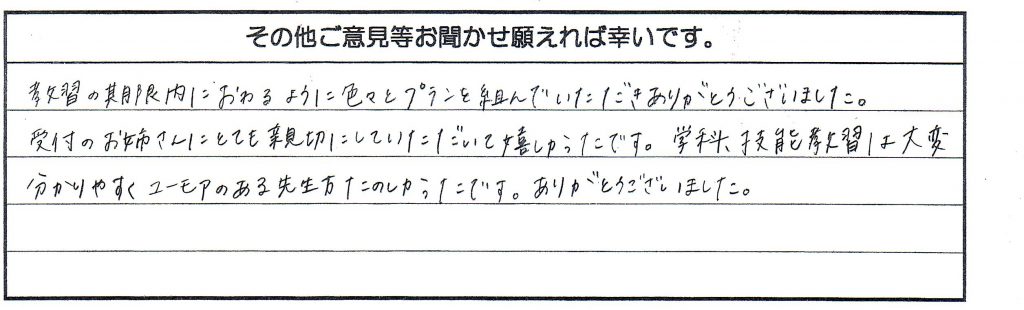 その他ご意見等お聞かせ願えれば幸いです。
教習の期限内におわるように色々とプランを組んでいただきありがとうございました。
受付のお姉さんにとても親切にしていただいて嬉しかったです。学科、技能教習は大変
分かりやすくユーモアのある先生方たのしかったです。ありがとうございました。